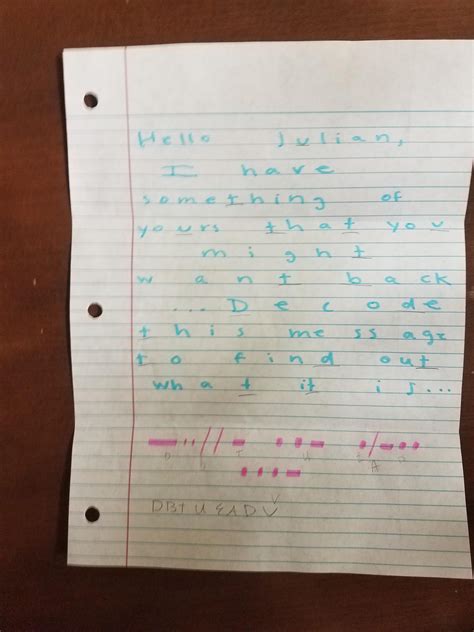 Hello Julian,
I have
something of
yours that you
might
want back
... Decode
this message
to find out
what it is...
DBTU